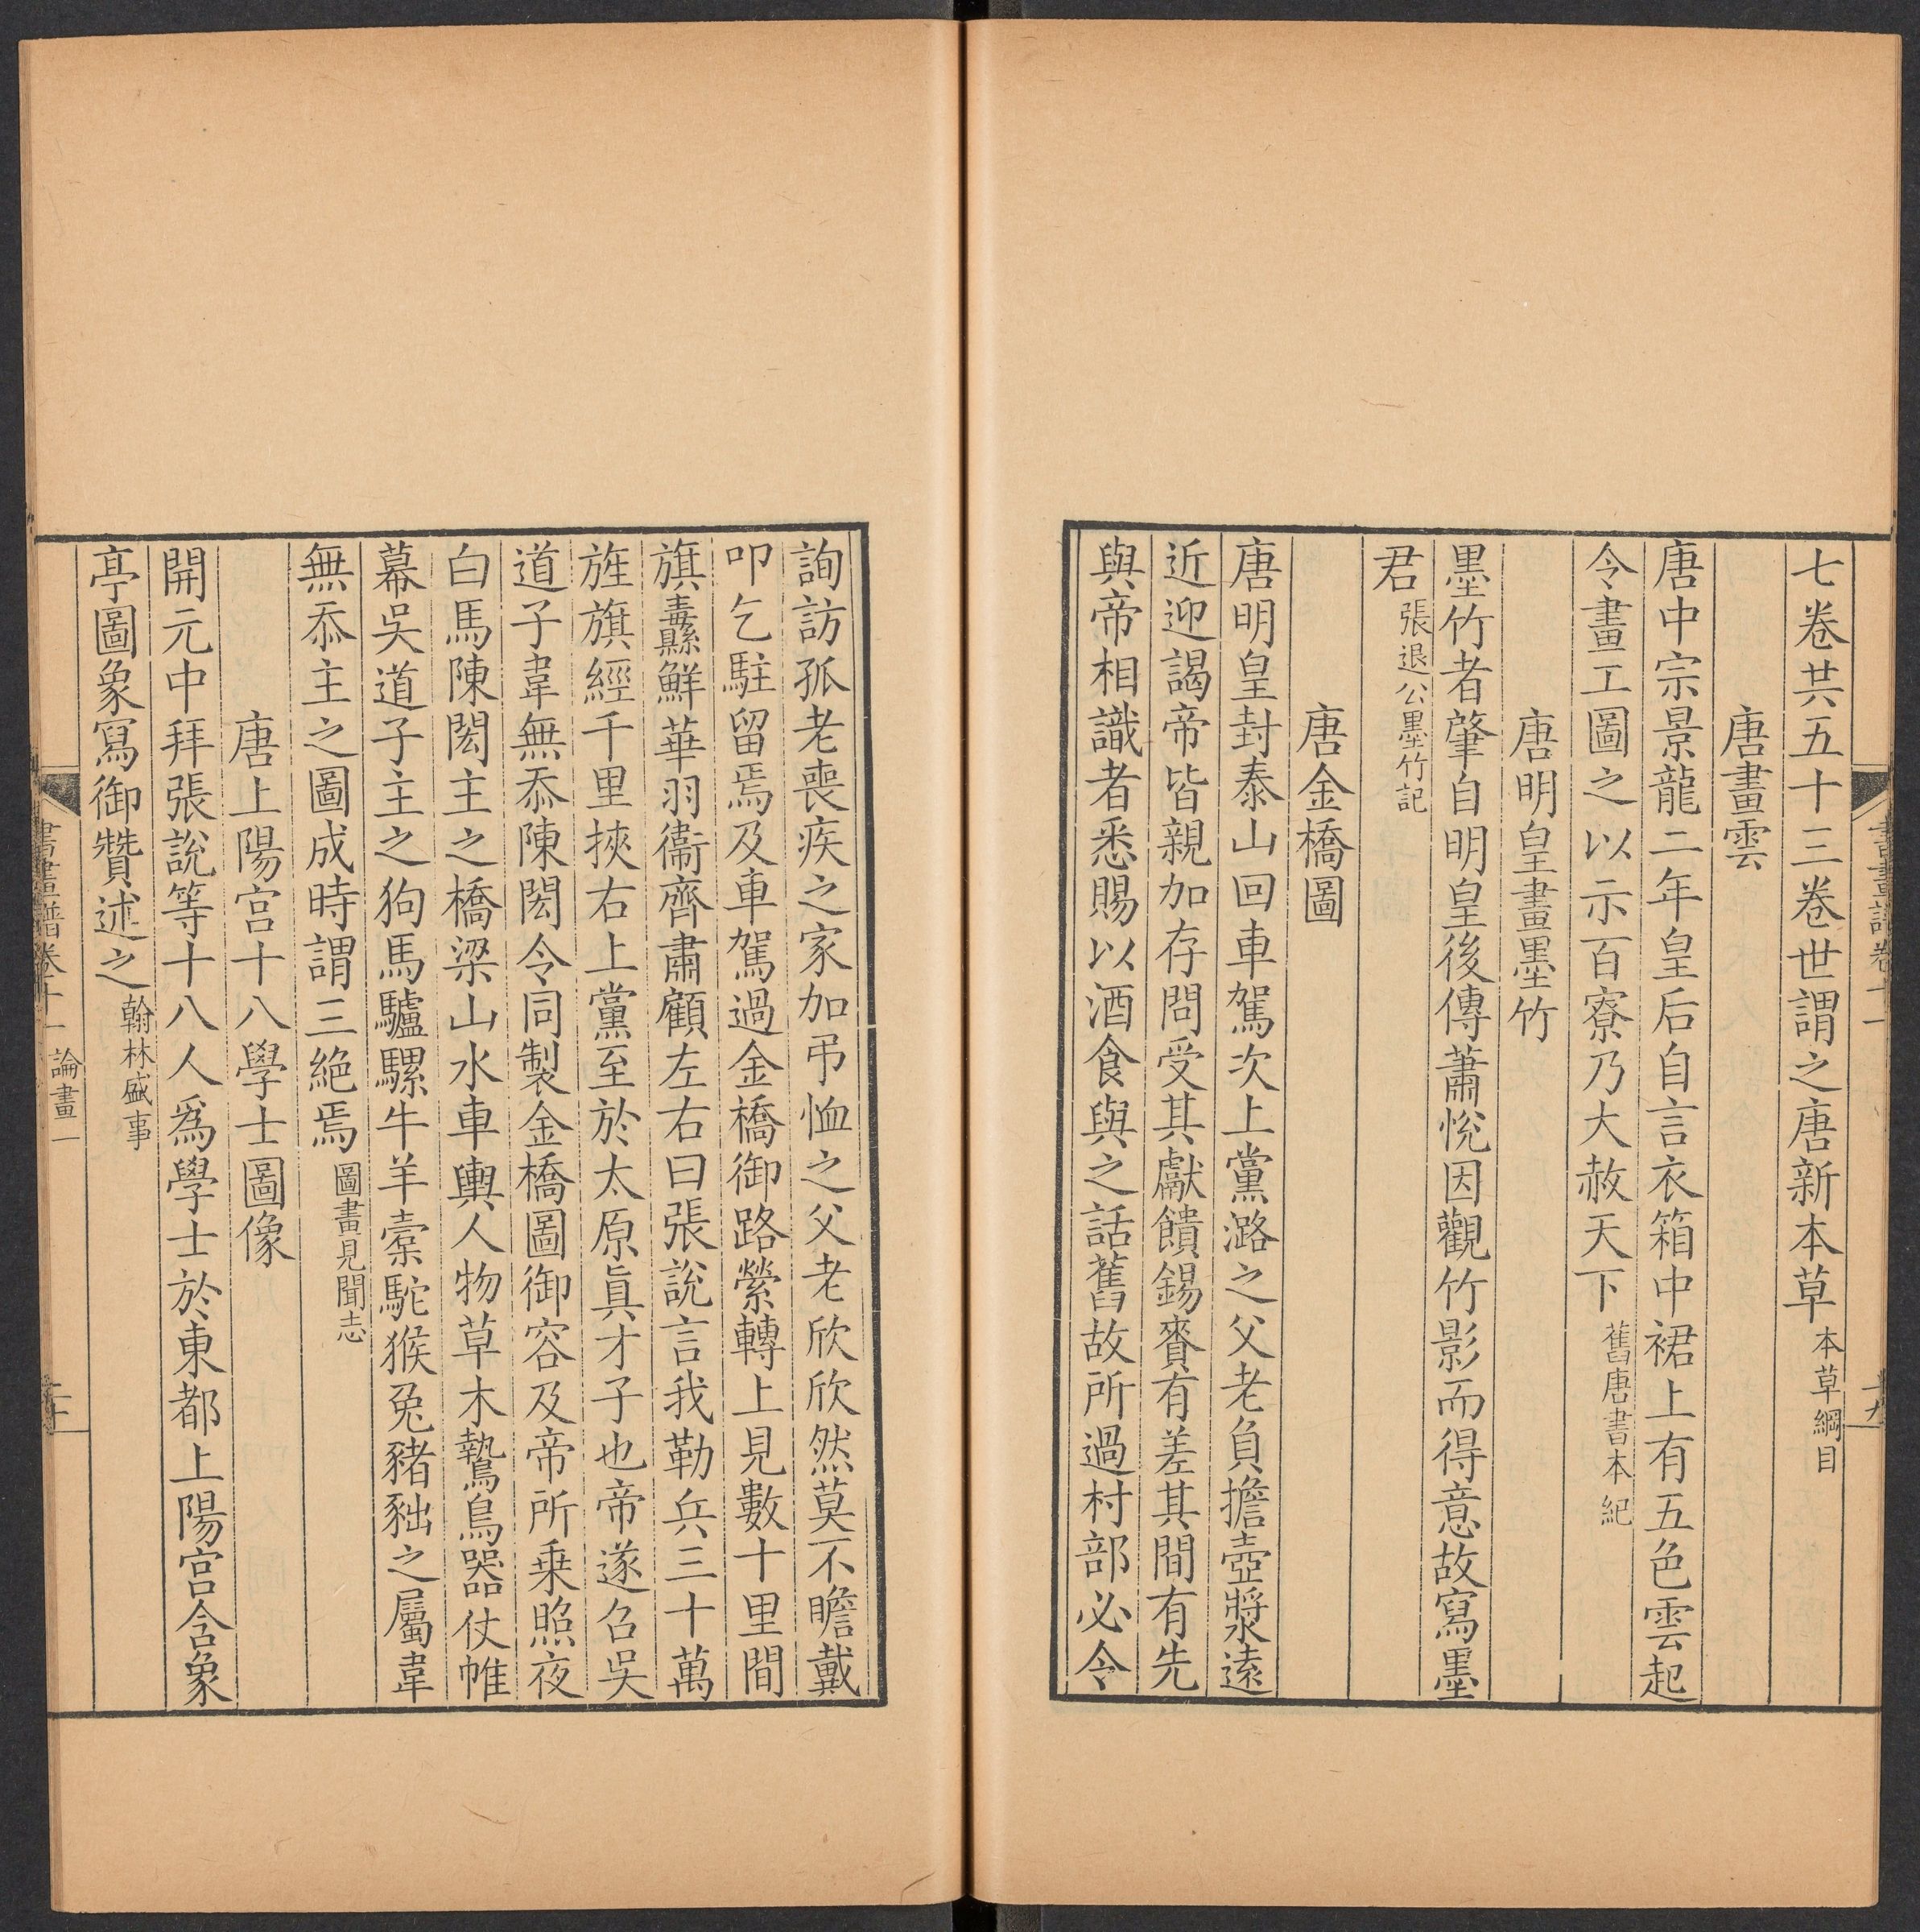 七卷共五十三卷世謂之唐新本草本草綱目
唐畫雲
唐中宗景龍二年皇后自言衣箱中裙上有五色雲起
令畫工圖之以示百寮乃大赦天下舊唐書本紀
唐明皇畫墨竹
墨竹者肇自明皇後傳蕭悅因觀竹影而得意故寫墨
君張退公墨竹記
唐金橋圖
唐明皇封泰山回車駕次上黨潞之父老負擔壺漿遠
近迎謁帝皆親加存問受其獻饋錫賚有差其間有先
與帝相識者悉賜以酒食與之話舊故所過村部必令
詢訪孤老喪疾之家加弔恤之父老欣欣然莫不瞻戴
叩乞駐留焉及車駕過金橋御路縈轉上見數十里間
旗纛鮮華羽衞齊肅顧左右曰張說言我勒兵三十萬
旌旗經千里挾右上黨至於太原眞才子也帝遂召吳
道子韋無忝陳閎令同製金橋圖御容及帝所乗照夜
白馬陳閎主之橋梁山水車輿人物草木鷙鳥器仗帷
幕吳道子主之狗馬驢騾牛羊橐駝猴兔豬㹠之屬韋
無忝主之圖成時謂三絕焉圖畫見聞志
唐上陽宮十八學士圖像
開元中拜張說等十八人爲學士於東都上陽宮含象
亭圖象寫御贊述之翰林盛事
書畫譜卷十一 論畫一